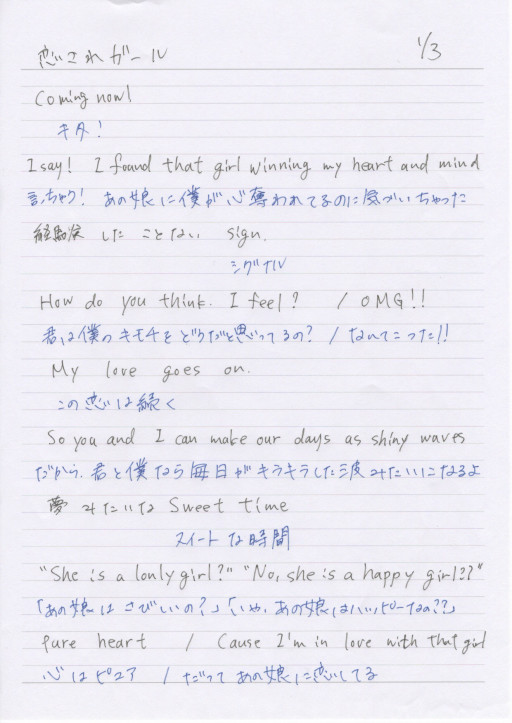 恋されガール 1/3
Coming now!
キタ!
I say! I found that girl winning my heart and mind
言っちゃう! あの娘に僕が心奪われてるのに気がついちゃった
経験 したことない sign.
シグナル
How do you think. I feel? / OMG!!
君は僕のキモチをどうだと思ってるの? / なんてこった!!
My love goes on.
この恋は続く
So you and I can make our days as shiny waves
だから、君と僕なら毎日がキラキラした波みたいになるよ
夢みたいな Sweet time
スイートな時間
"She is a lonly girl?" "No, she is a happy girl??"
「あの娘はさびしいの?」「いや、あの娘はハッピーなの??」
pure heart / Cause I'm in love with that girl
心はピュア / だってあの娘に恋してる